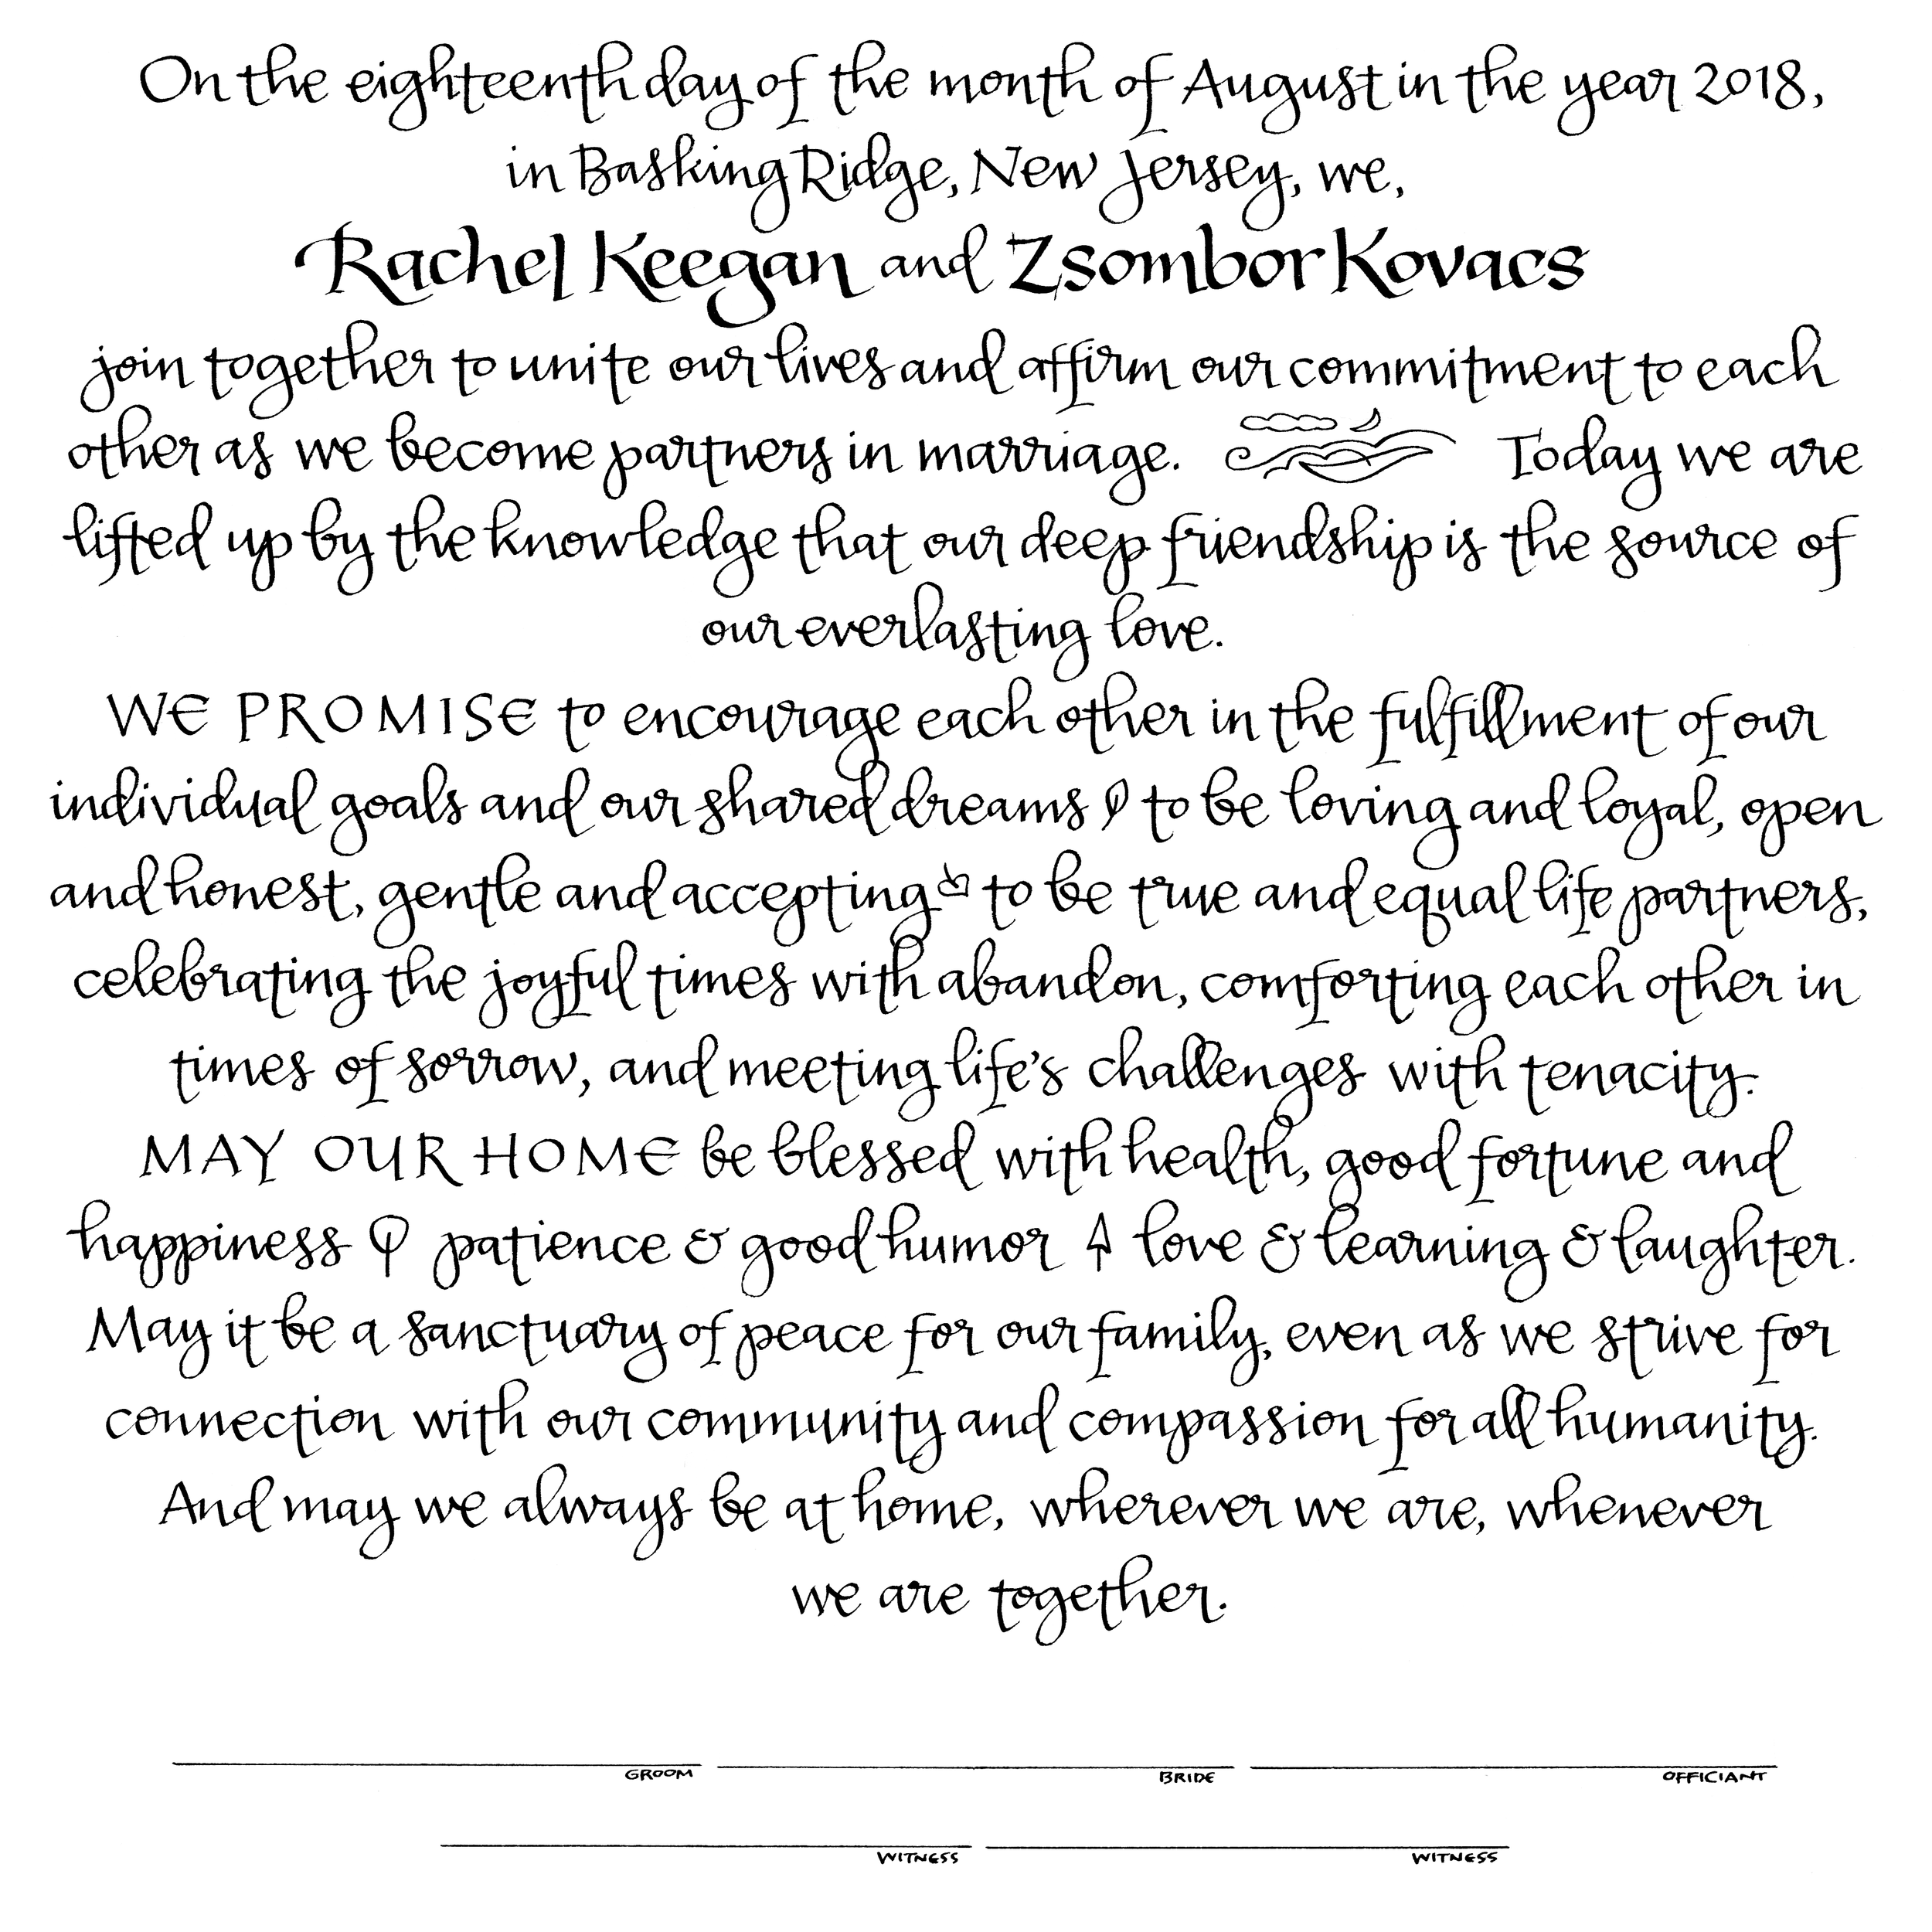 On the eighteenth day of the month of August in the year 2018,
in Basking Ridge, New Jersey, we,
Rachel Keegan and Zsombor Kovacs
join together to unite our lives and affirm our commitment to each
other as we become partners in marriage. Today we are
lifted up by the knowledge that our deep friendship is the source of
our everlasting love.
WE PROMISE to encourage each other in the fulfillment of our
individual goals and our shared dreams to be loving and loyal, open
and honest, gentle and accepting to be true and equal life partners,
celebrating the joyful times with abandon, comforting each other in
times of sorrow, and meeting life's challenges with tenacity.
MAY OUR HOME be blessed with health, good fortune and
happiness patience & good humor love & learning & laughter.
May it be a sanctuary of peace for our family, even as we strive for
connection with our community and compassion for all humanity.
And may we always be at home, wherever we are, whenever
we are together.
GROOM BRIDE OFFICIANT
WITNESS WITNESS